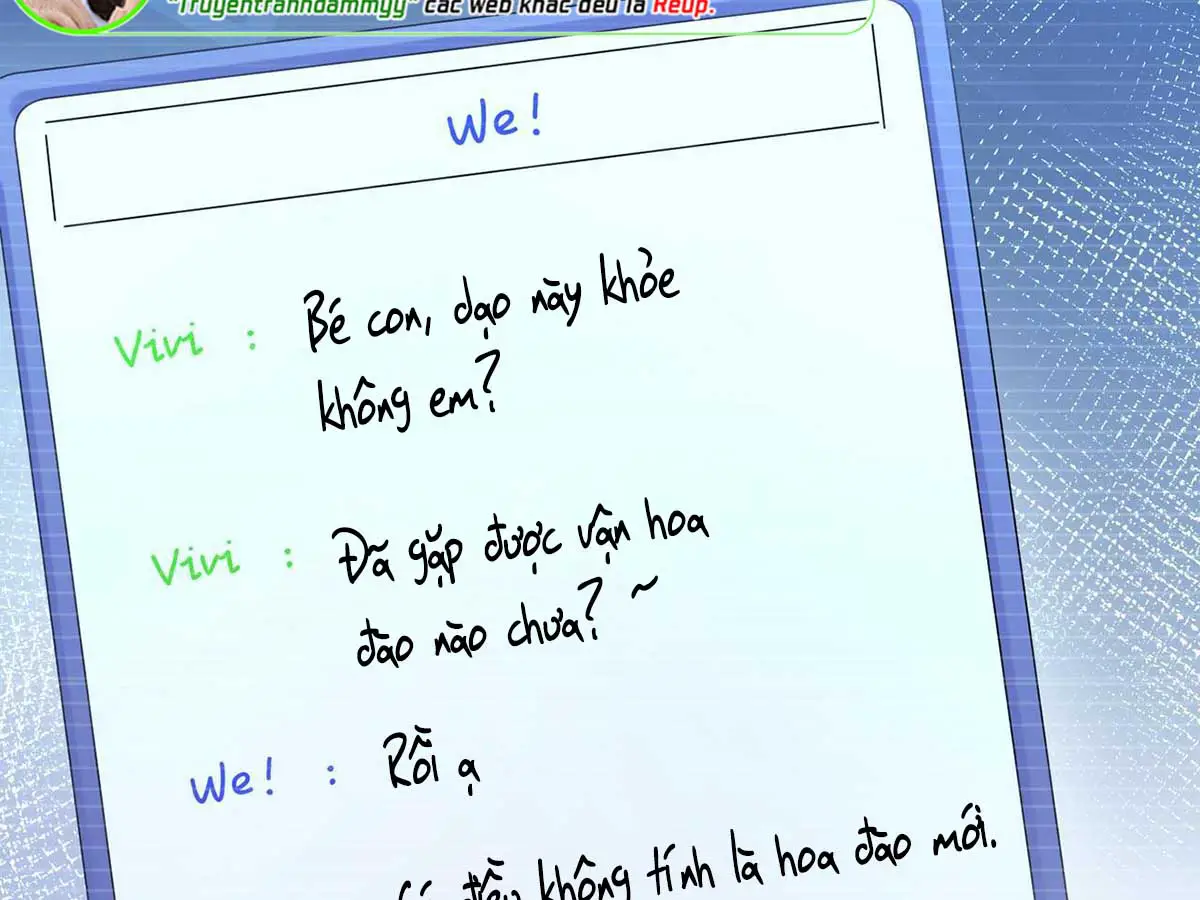 "Truyentranhdammyy" các web khác đều là Reup.
We!
Vivi : Bé con, dạo này khỏe
không em?
Vivi : Đã gặp được vận hoa
đào nào chưa? ~
We! : Rồi ạ
điều không tính là hoa đào mới.